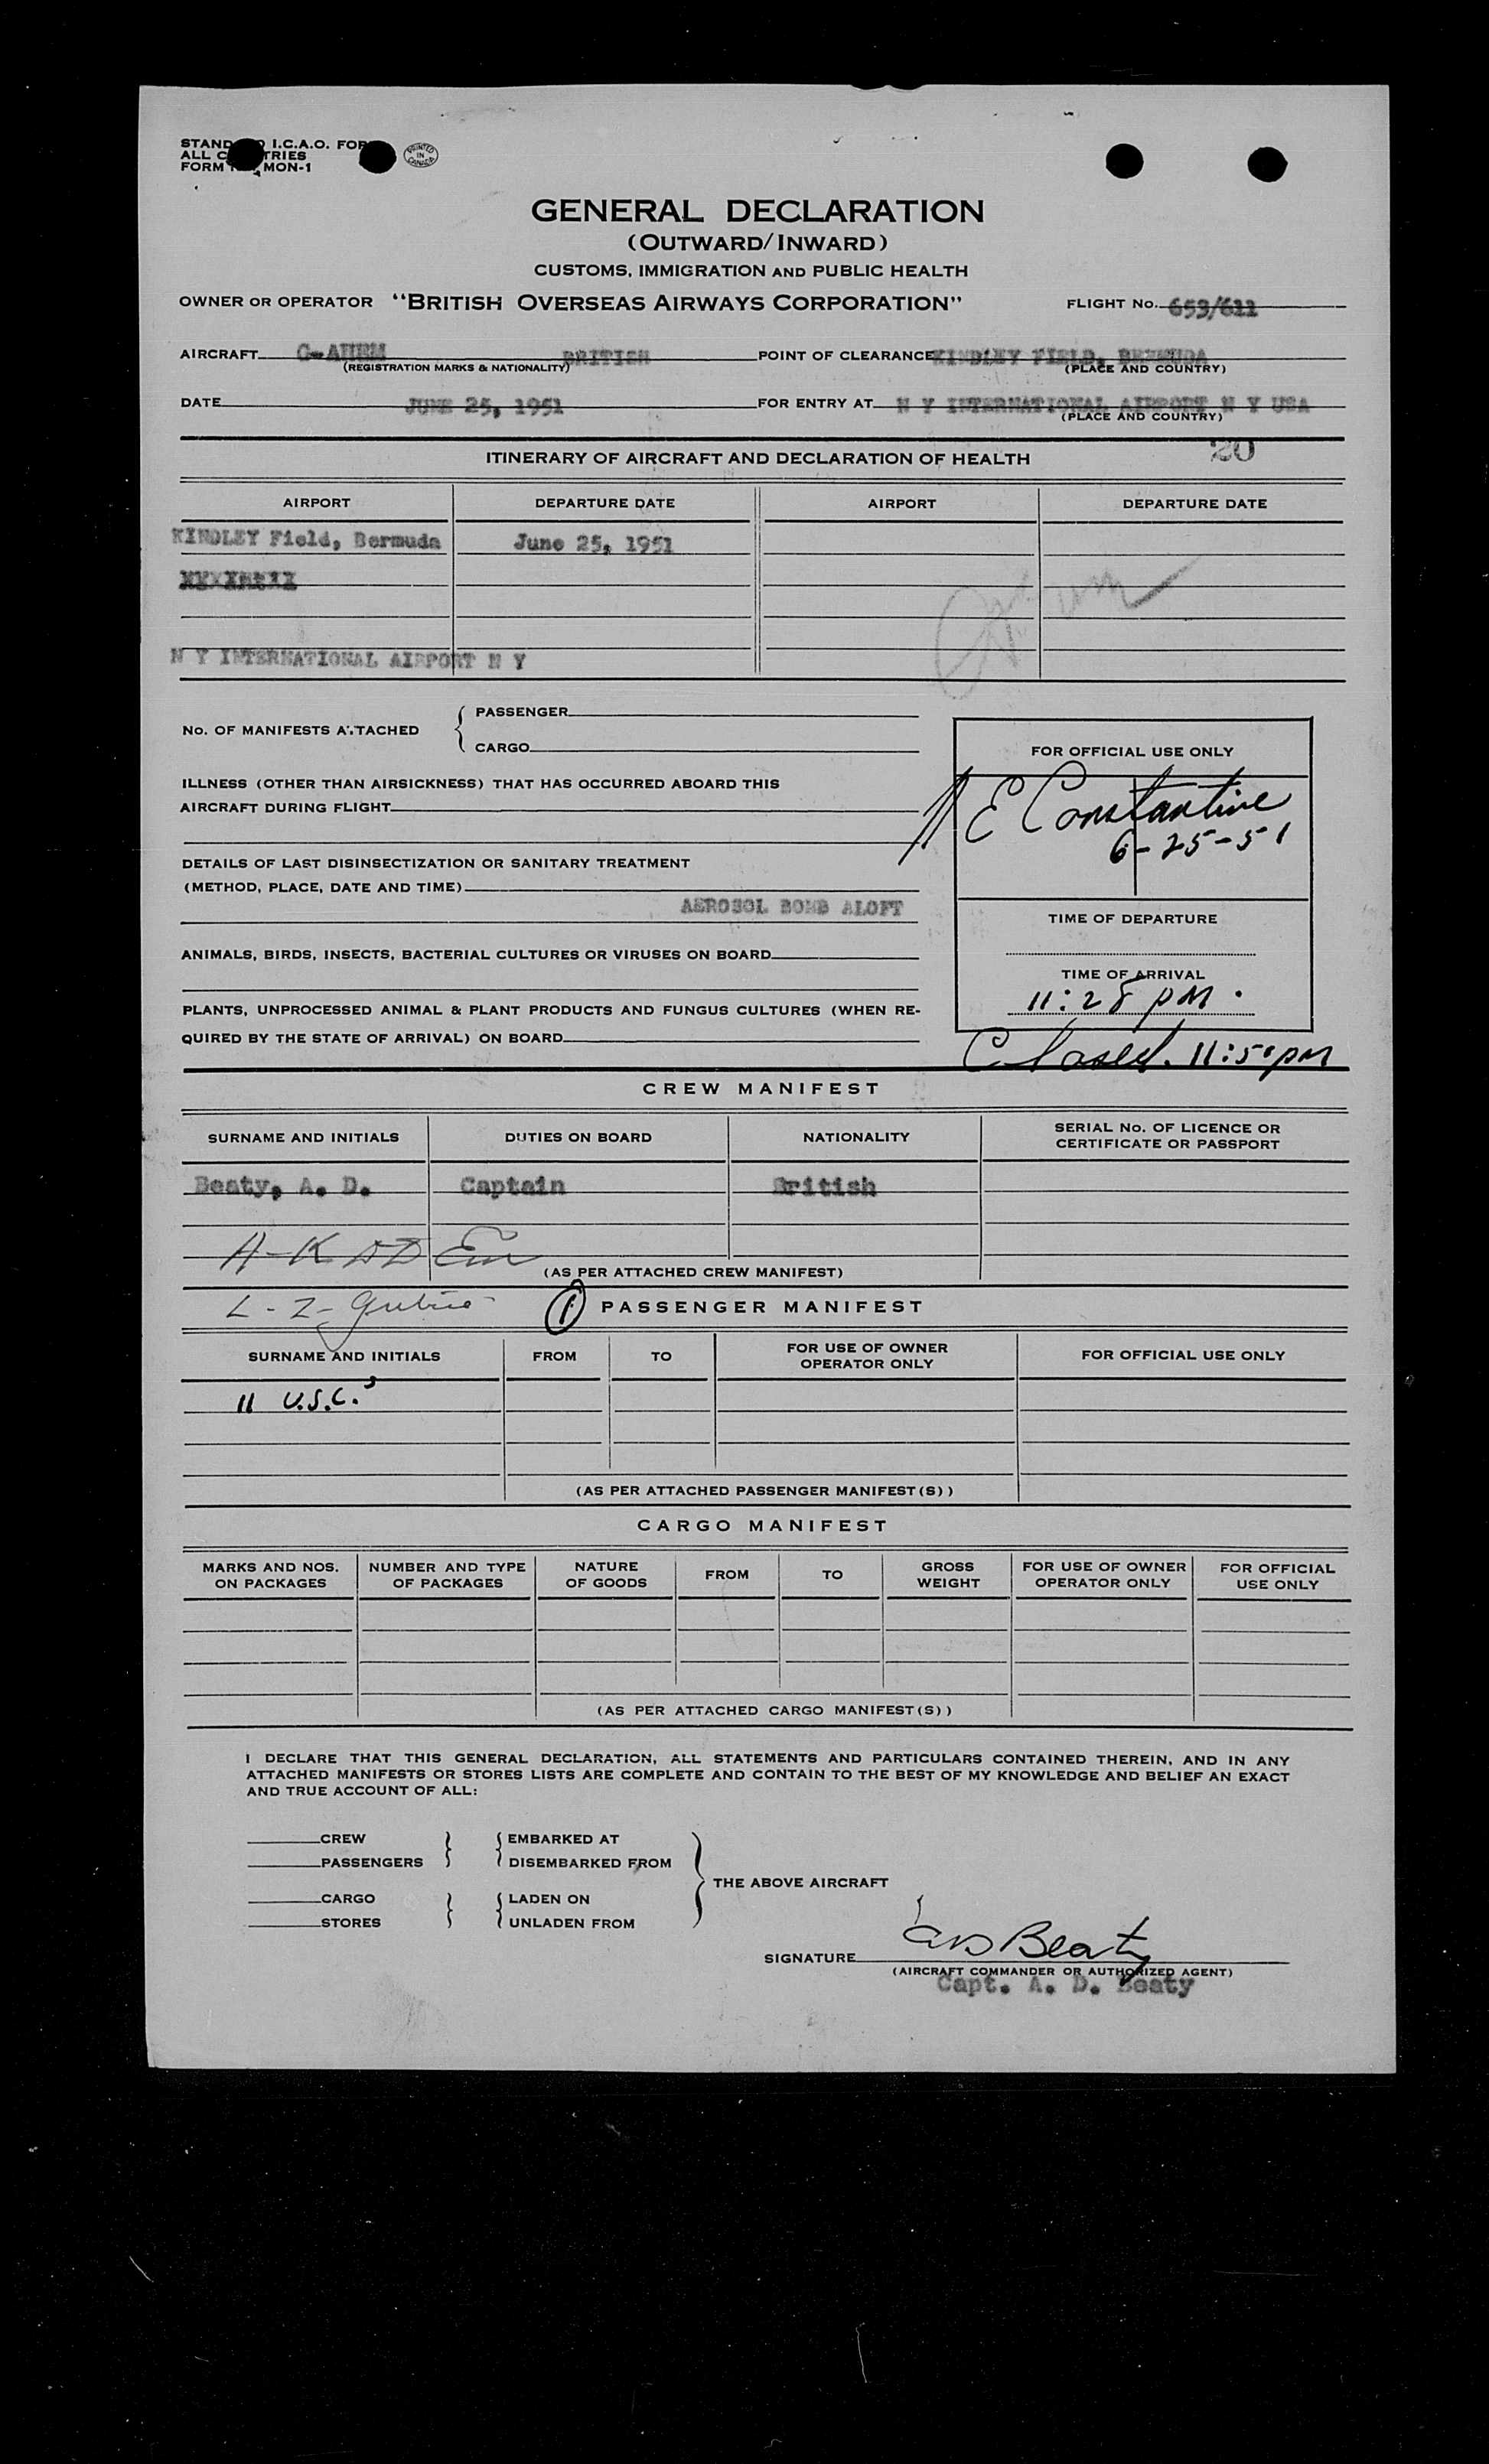 STAND I.C.A.O. FOR
ALL C TRIES
FORM MON-1
PRINTED IN CANADA
GENERAL DECLARATION
(OUTWARD/INWARD)
CUSTOMS, IMMIGRATION AND PUBLIC HEALTH
OWNER OR OPERATOR "BRITISH OVERSEAS AIRWAYS CORPORATION" FLIGHT No. 653/611
AIRCRAFT G-AHEM BRITISH POINT OF CLEARANCE KINDLEY FIELD, BERMUDA
(REGISTRATION MARKS & NATIONALITY) (PLACE AND COUNTRY)
DATE JUNE 25, 1951 FOR ENTRY AT N Y INTERNATIONAL AIRPORT N Y USA
(PLACE AND COUNTRY)
20
ITINERARY OF AIRCRAFT AND DECLARATION OF HEALTH
AIRPORT DEPARTURE DATE AIRPORT DEPARTURE DATE
KINDLEY Field, Bermuda June 25, 1951
N Y INTERNATIONAL AIRPORT N Y
No. OF MANIFESTS ATTACHED { PASSENGER
CARGO
FOR OFFICIAL USE ONLY
ILLNESS (OTHER THAN AIRSICKNESS) THAT HAS OCCURRED ABOARD THIS
AIRCRAFT DURING FLIGHT
E Constantine
6-25-51
DETAILS OF LAST DISINSECTIZATION OR SANITARY TREATMENT
(METHOD, PLACE, DATE AND TIME)
AEROSOL BOMB ALOFT
TIME OF DEPARTURE
ANIMALS, BIRDS, INSECTS, BACTERIAL CULTURES OR VIRUSES ON BOARD
TIME OF ARRIVAL
11:28 PM.
PLANTS, UNPROCESSED ANIMAL & PLANT PRODUCTS AND FUNGUS CULTURES (WHEN RE-
QUIRED BY THE STATE OF ARRIVAL) ON BOARD
Closed. 11:50 PM
CREW MANIFEST
SURNAME AND INITIALS DUTIES ON BOARD NATIONALITY SERIAL No. OF LICENCE OR
CERTIFICATE OR PASSPORT
Beaty, A. D. Captain British
(AS PER ATTACHED CREW MANIFEST)
1 PASSENGER MANIFEST
SURNAME AND INITIALS FROM TO FOR USE OF OWNER
OPERATOR ONLY FOR OFFICIAL USE ONLY
11 U.S.C.'s
(AS PER ATTACHED PASSENGER MANIFEST(S))
CARGO MANIFEST
MARKS AND NOS.
ON PACKAGES NUMBER AND TYPE
OF PACKAGES NATURE
OF GOODS FROM TO GROSS
WEIGHT FOR USE OF OWNER
OPERATOR ONLY FOR OFFICIAL
USE ONLY
(AS PER ATTACHED CARGO MANIFEST(S))
I DECLARE THAT THIS GENERAL DECLARATION, ALL STATEMENTS AND PARTICULARS CONTAINED THEREIN, AND IN ANY
ATTACHED MANIFESTS OR STORES LISTS ARE COMPLETE AND CONTAIN TO THE BEST OF MY KNOWLEDGE AND BELIEF AN EXACT
AND TRUE ACCOUNT OF ALL:
CREW } { EMBARKED AT
PASSENGERS DISEMBARKED FROM
THE ABOVE AIRCRAFT
CARGO } { LADEN ON
STORES UNLADEN FROM
SIGNATURE AD Beaty
(AIRCRAFT COMMANDER OR AUTHORIZED AGENT)
Capt. A. D. Beaty